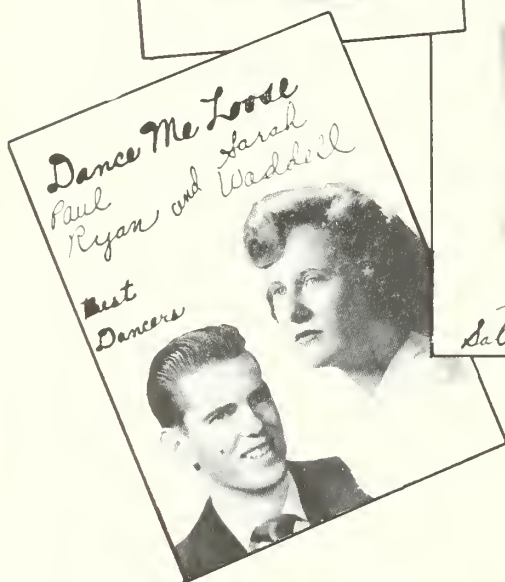 Dance Me Loose
Paul
Ryan and Sarah
Waddell
Best
Dancers